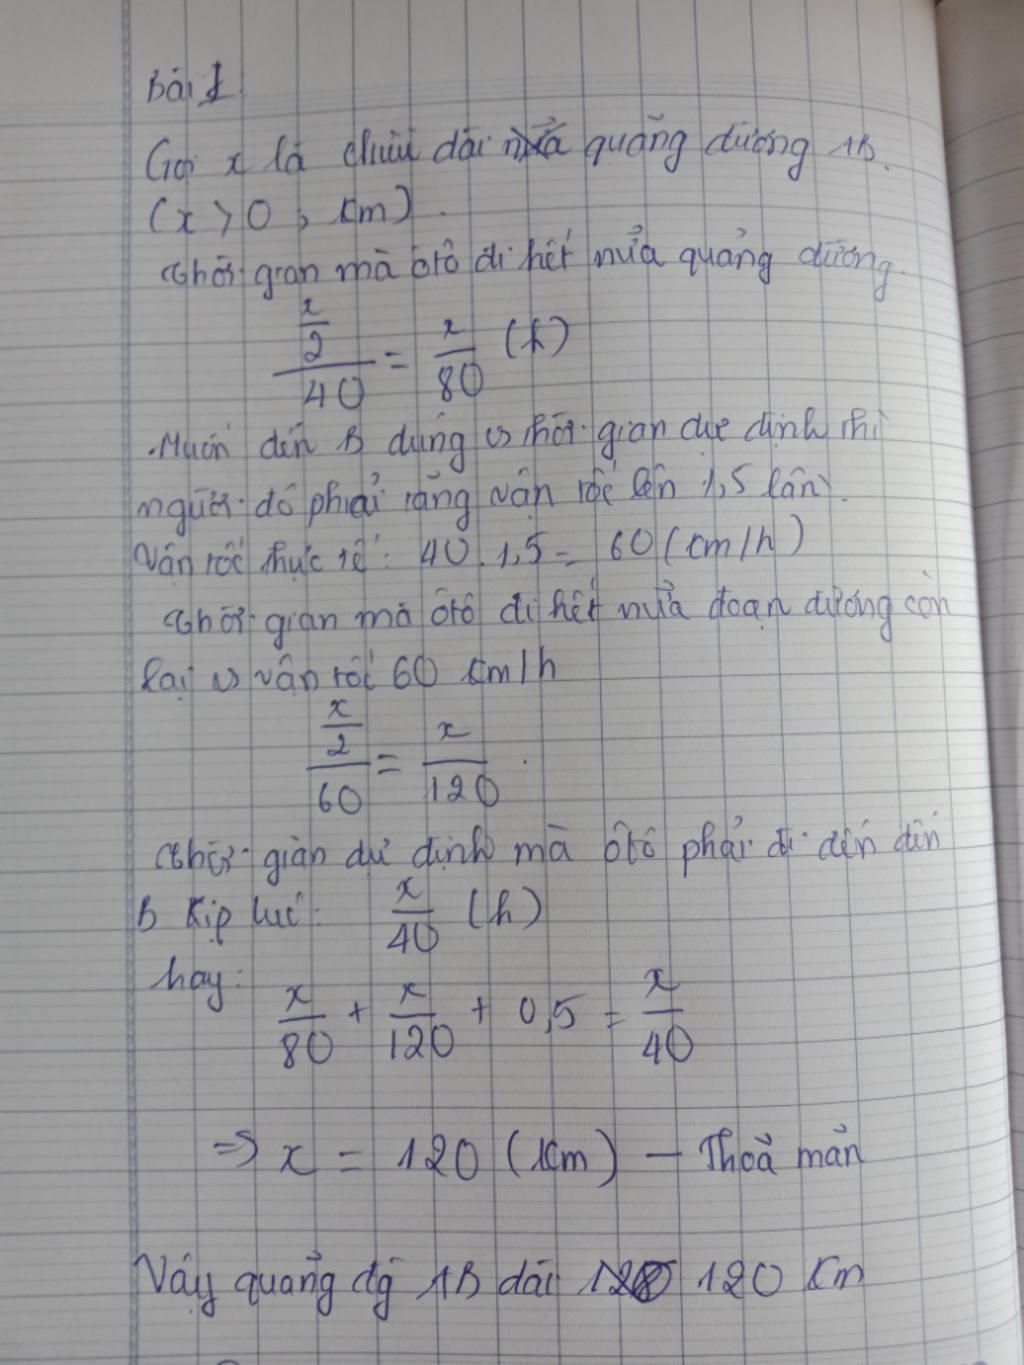 Bài 1
Gọi x là chiều dài quãng đường AB.
(x > 0, km).
Thời gian mà ôtô đi hết nửa quảng đường.
\frac{\frac{x}{2}}{40} = \frac{x}{80} (h)
Muốn đến B đúng với thời gian dự định thì
người đó phải tăng vận tốc lên 1,5 lần.
Vận tốc thực tế: 40.1,5 = 60 (km/h)
Thời gian mà ôtô đi hết nửa đoạn đường còn
lại với vận tốc 60 km/h
\frac{\frac{x}{2}}{60} = \frac{x}{120}.
Thời gian dự định mà ôtô phải đi đến đến
B kịp lúc: \frac{x}{40} (h)
hay: \frac{x}{80} + \frac{x}{120} + 0,5 = \frac{x}{40}
⇒ x = 120 (km) – Thoả mãn
Vậy quảng đg AB dài 120 km